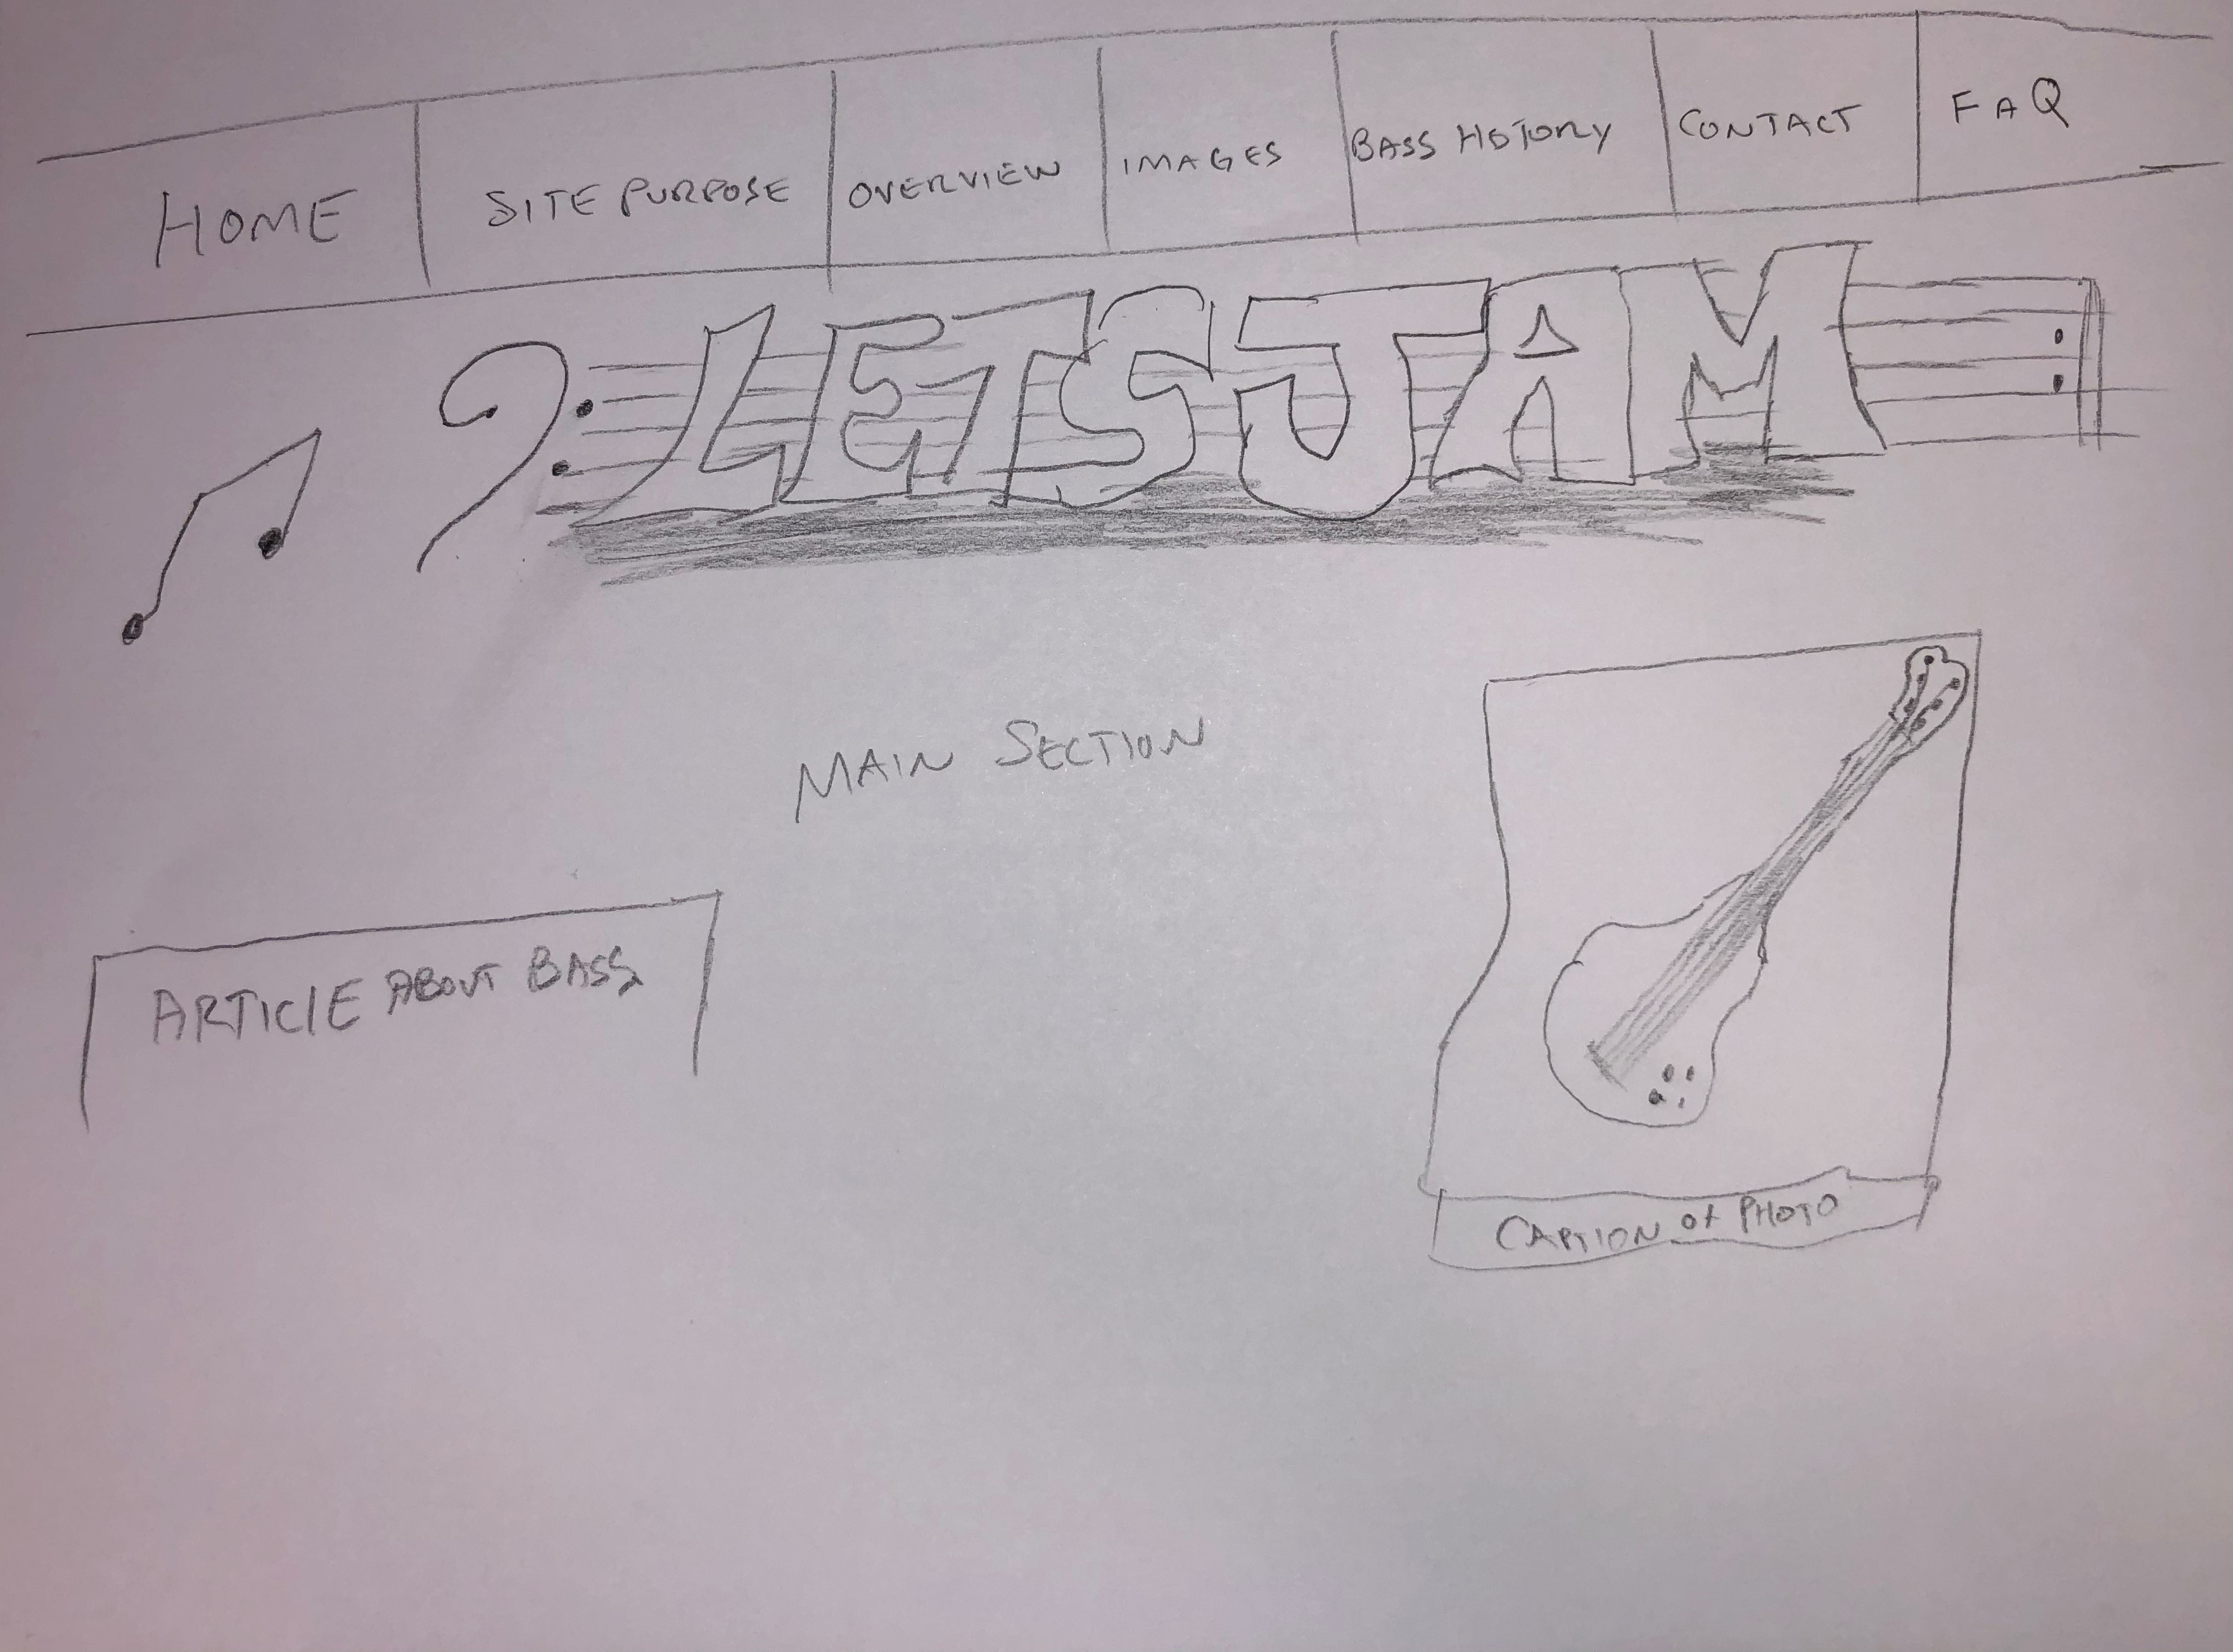 HOME
SITE PURPOSE
OVERVIEW
IMAGES
BASS HISTORY
CONTACT
FAQ
LETS JAM
MAIN SECTION
ARTICLE ABOUT BASS
CAPTION OF PHOTO